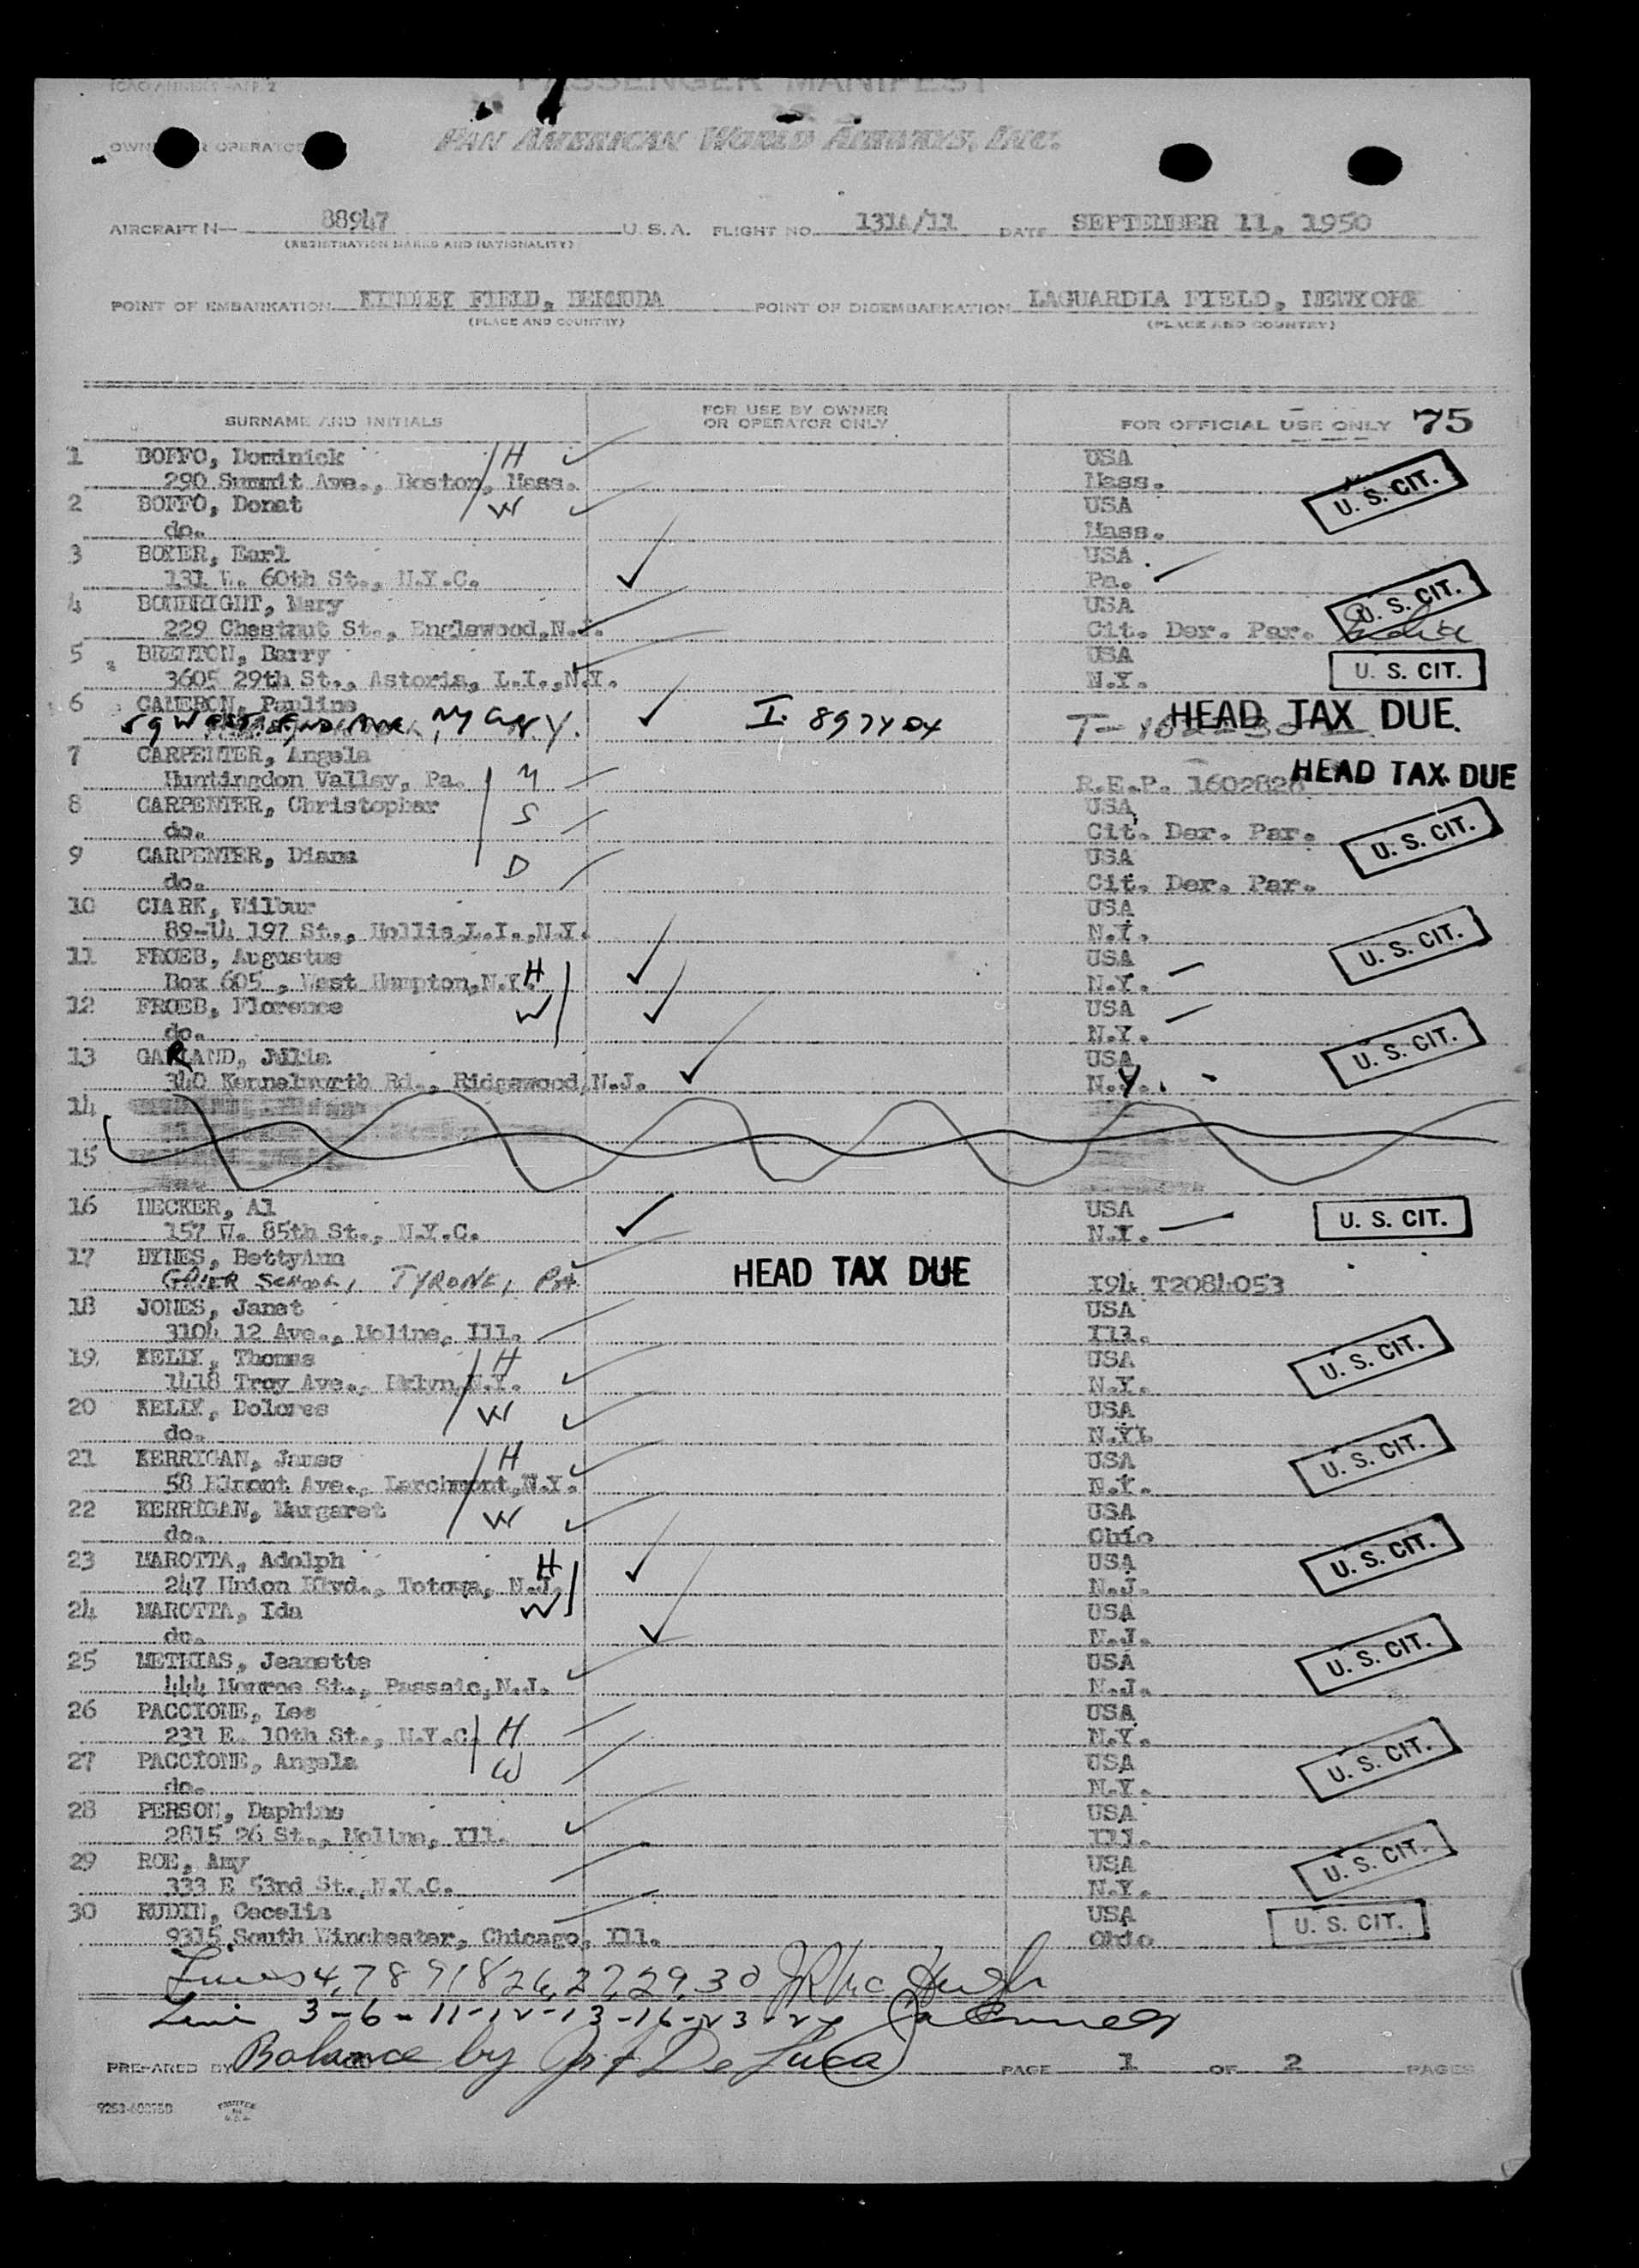 PASSENGER MANIFEST
PAN AMERICAN WORLD AIRWAYS, INC.
AIRCRAFT N— 88947 U.S.A. FLIGHT NO. 131A/11 DATE SEPTEMBER 11, 1950
(REGISTRATION MARKS AND NATIONALITY)
POINT OF EMBARKATION KINDLEY FIELD, BERMUDA POINT OF DISEMBARKATION LAGUARDIA FIELD, NEWYORK
(PLACE AND COUNTRY) (PLACE AND COUNTRY)
SURNAME AND INITIALS FOR USE BY OWNER OR OPERATOR ONLY FOR OFFICIAL USE ONLY 75
1 BOFFO, Dominick H USA
290 Summit Ave., Boston, Mass. Mass. U. S. CIT.
2 BOFFO, Donat W USA
do. Mass.
3 BOXER, Earl USA
131 W. 60th St., N.Y.C. Pa.
4 BONBRIGHT, Mary USA U. S. CIT.
229 Chestnut St., Englewood,N.J. Cit. Der. Par.
5 BRENTON, Barry USA
3605 29th St., Astoria, L.I.,N.Y. N.Y. U. S. CIT.
6 CAMERON, Pauline HEAD TAX DUE
7 CARPENTER, Angela
Huntingdon Valley, Pa. M R.E.P. 1602828 HEAD TAX DUE
8 CARPENTER, Christopher S USA
do. Cit. Der. Par. U. S. CIT.
9 CARPENTER, Diana D USA
do. Cit. Der. Par.
10 CLARK, Wilbur USA
89-14 197 St., Hollis,L.I.,N.Y. N.Y. U. S. CIT.
11 FROEB, Augustus USA
Box 605 , West Hampton,N.Y. H N.Y.
12 FROEB, Florence W USA
do. N.Y.
13 GARLAND, Julia USA U. S. CIT.
340 Kennelworth Rd., Ridgewood,N.J. N.Y.
14
15
16 HECKER, Al USA
157 W. 85th St., N.Y.C. N.Y. U. S. CIT.
17 HYNES, BettyAnn
GRIER SCHOOL, TYRONE, PA. HEAD TAX DUE I94 T2084053
18 JONES, Janet USA
3104 12 Ave., Moline, Ill. Ill.
19 KELLY, Thomas H USA U. S. CIT.
1418 Troy Ave., Bklyn,N.Y. N.Y.
20 KELLY, Dolores W USA
do. N.Y.
21 KERRIGAN, James H USA U. S. CIT.
58 Elmont Ave., Larchmont,N.Y. N.Y.
22 KERRIGAN, Margaret W USA
do. Ohio
23 MAROTTA, Adolph H USA U. S. CIT.
247 Union Blvd., Totowa, N.J. N.J.
24 MAROTTA, Ida W USA
do. N.J.
25 METHIAS, Jeanette USA U. S. CIT.
444 Monroe St., Passaic,N.J. N.J.
26 PACCIONE, Leo USA
231 E. 10th St., N.Y.C. H N.Y.
27 PACCIONE, Angela W USA U. S. CIT.
do. N.Y.
28 PERSON, Daphine USA
2815 26 St., Moline, Ill. Ill.
29 ROE, Amy USA U. S. CIT.
333 E 53rd St.,N.Y.C. N.Y.
30 RUDIN, Cecelia USA U. S. CIT.
9315 South Winchester, Chicago, Ill. Ohio
Lines 4,7 8 9 18 26,27,29,30 JR McHugh
Line 3-6-11-12-13-16-23-24
PREPARED BY Balance by De Luca PAGE 1 OF 2 PAGES